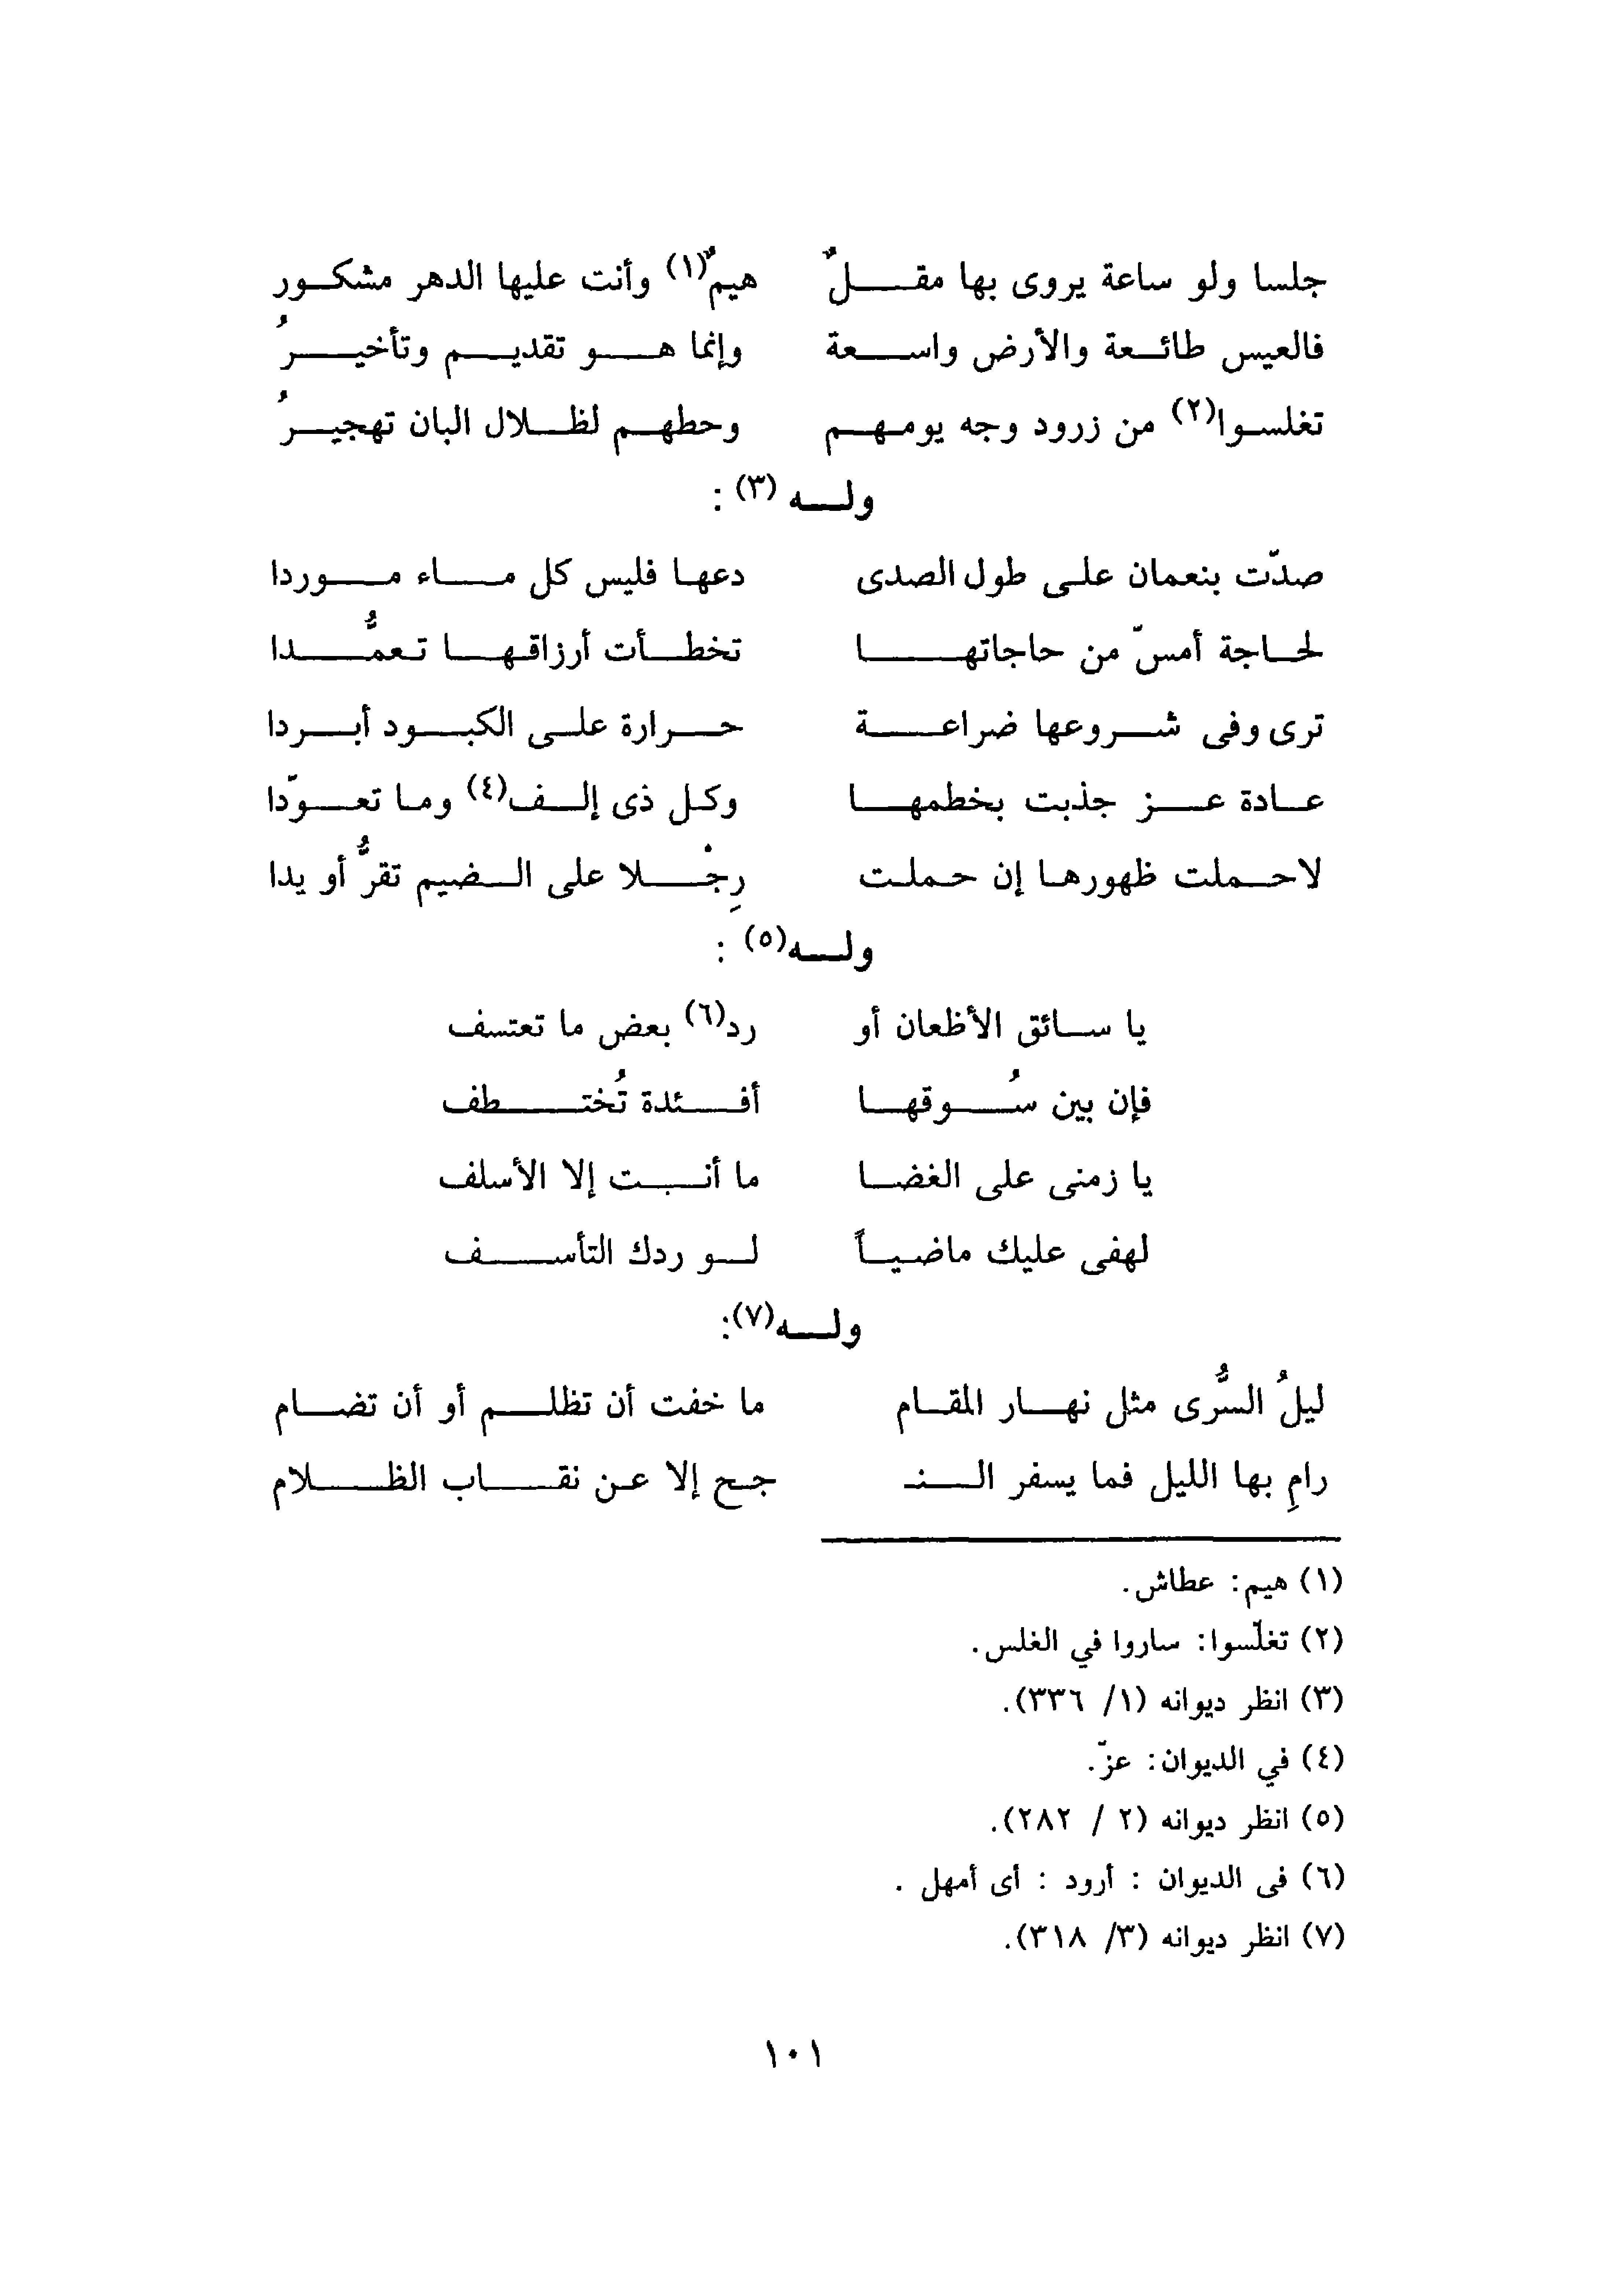 جلسا ولو ساعة يروى بها مقلٌ هيمٌ(١) وأنت عليها الدهر مشكور
فالعيس طائعة والأرض واسعة وإنما هو تقديم وتأخيرُ
تغلسوا(٢) من زرود وجه يومهم وحطهم لظلال البان تهجيرُ
وله (٣) :
صدّت بنعمان على طول الصدى دعها فليس كل ماء موردا
لحاجة أمسّ من حاجاتها تخطأت أرزاقها تعمُّدا
ترى وفى شروعها ضراعة حرارة على الكبود أبردا
عادة عز جذبت بخطمها وكل ذى إلف(٤) وما تعوّدا
لاحملت ظهورها إن حملت رِجْلا على الضيم تقرُّ أو يدا
وله(٥) :
يا سائق الأظعان أو رد(٦) بعض ما تعتسف
فإن بين سُوقها أفئدة تُختطف
يا زمنى على الغضا ما أنبت إلا الأسلف
لهفى عليك ماضياً لو ردك التأسف
وله(٧):
ليلُ السُّرى مثل نهار المقام ما خفت أن تظلم أو أن تضام
رامِ بها الليل فما يسفر النـ جح إلا عن نقاب الظلام
(١) هيم: عطاش.
(٢) تغلّسوا: ساروا في الغلس.
(٣) انظر ديوانه (١/ ٣٣٦).
(٤) في الديوان: عزّ.
(٥) انظر ديوانه (٢ / ٢٨٢).
(٦) فى الديوان : أرود : أى أمهل .
(٧) انظر ديوانه (٣/ ٣١٨).
١٠١